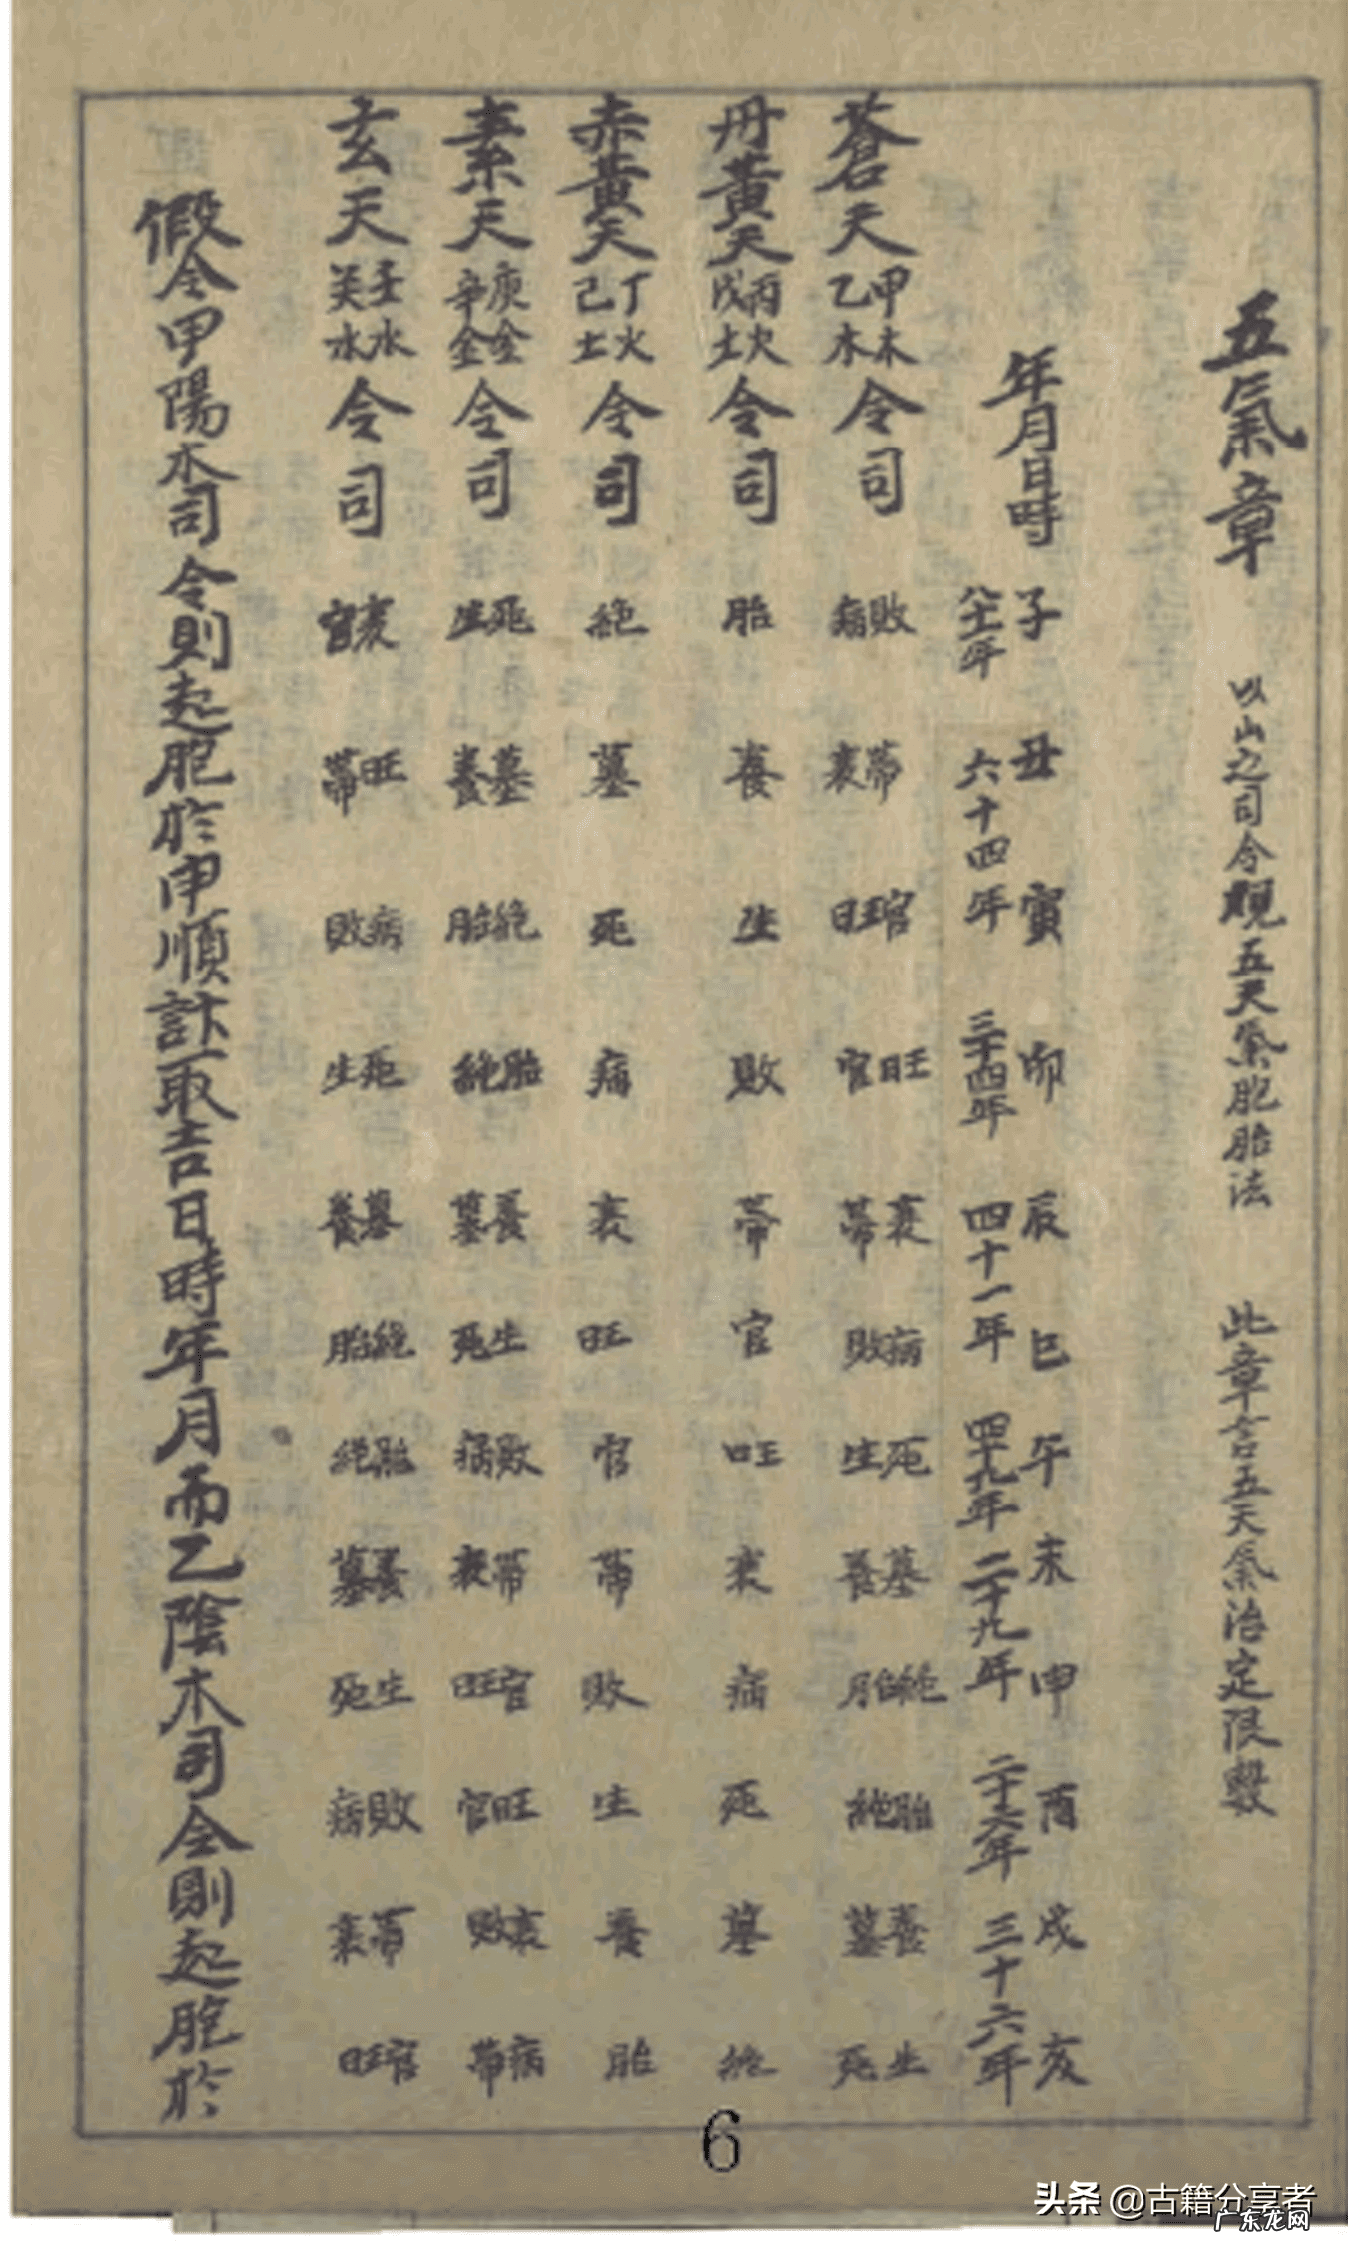 五氣章 以山之司令觀五天氣胞胎法 此章言五天氣治定限數
年月日時 子 丑 寅 卯 辰 巳 午 未 申 酉 戌 亥
八十一年 六十四年 三十四年 四十一年 四十九年 二十九年 二十六年 三十六年
蒼天 甲木 乙木 令司 敗病 帶衰 官旺 旺官 衰帶 病敗 死生 墓養 絶胎 胎絶 養墓 生死
丹黃天 丙火 戊土 令司 胎 養 生 敗 帶 官 旺 衰 病 死 墓 絶
赤黃天 丁火 己土 令司 絶 墓 死 病 衰 旺 官 帶 敗 生 養 胎
素天 庚金 辛金 令司 死生 墓養 絶胎 胎絶 養墓 生死 敗病 帶衰 官旺 旺官 衰敗 病帶
玄天 壬水 癸水 令司 衰官 旺帶 病敗 死生 墓養 絶胎 胎絶 養墓 生死 敗病 帶衰 官旺
假令甲陽木司令則起胞於申順計取吉日時年月而乙陰木司令則起胞於
6
头条 @古籍分享者
广东龙网